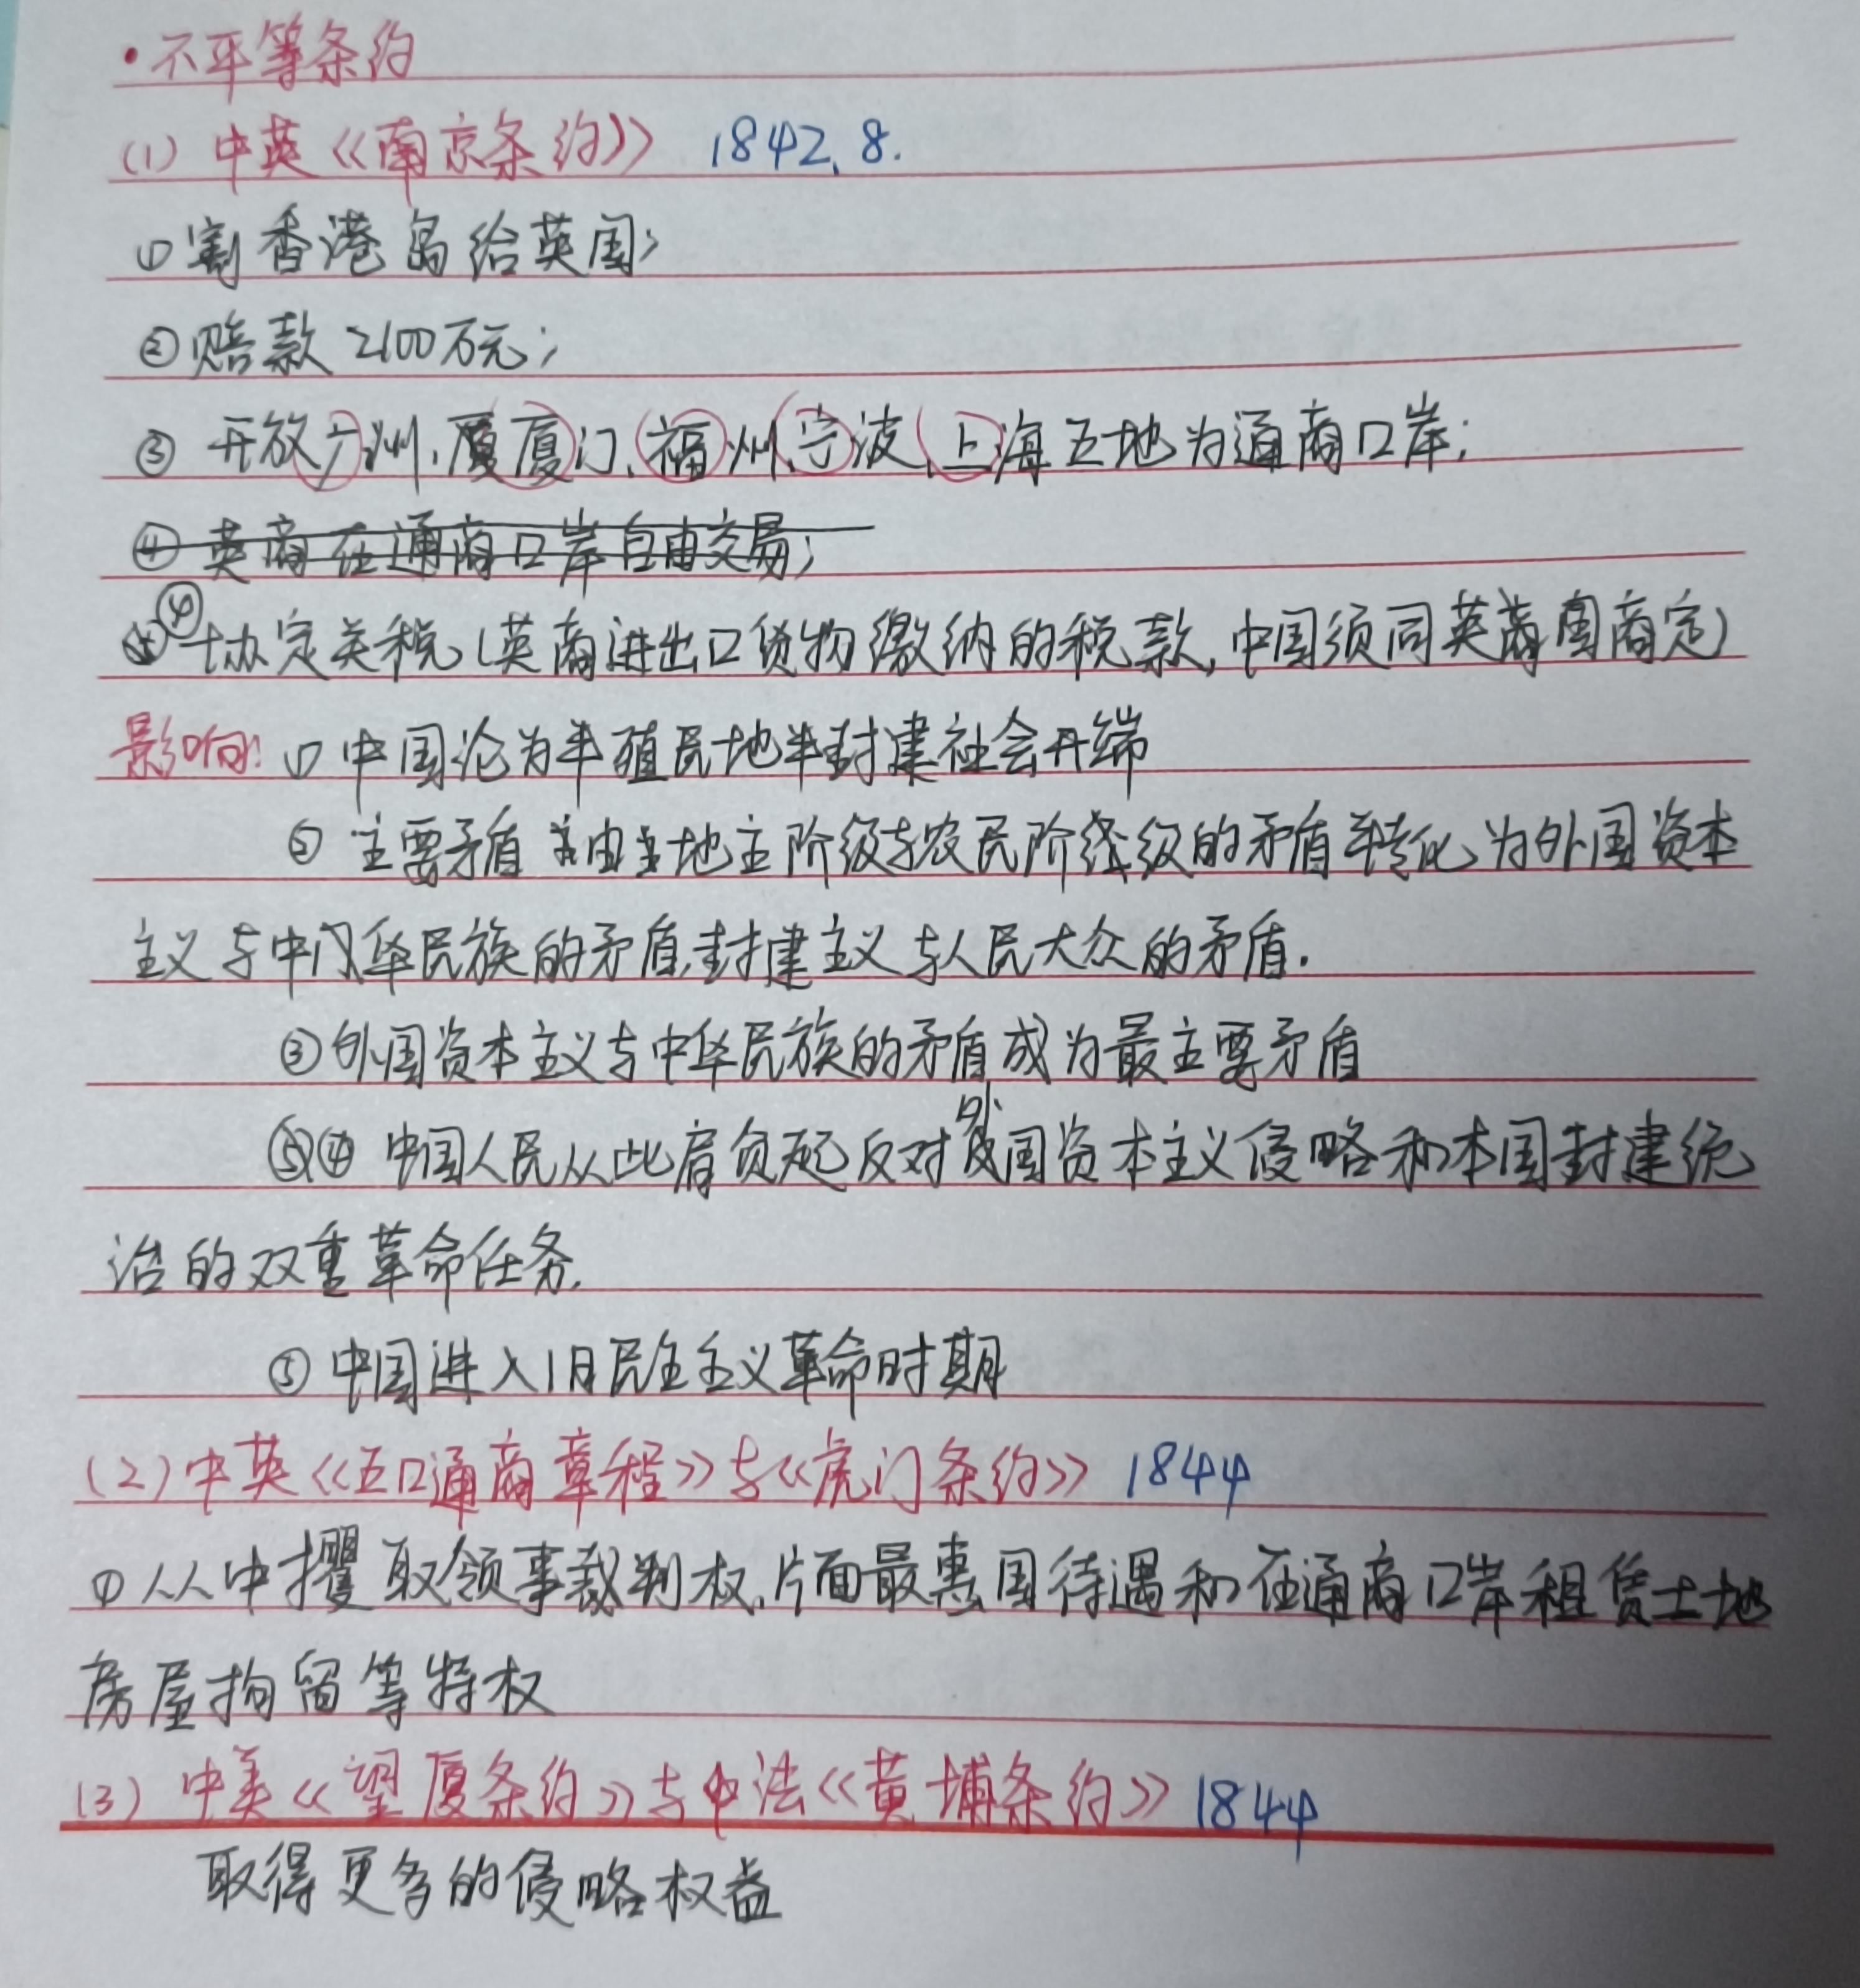 ·不平等条约
(1) 中英《南京条约》 1842.8.
①割香港岛给英国;
②赔款2100万元;
③ 开放广州、厦门、福州、宁波、上海五地为通商口岸;
④ 英商在通商口岸自由交易;
④协定关税(英商进出口货物缴纳的税款,中国须同英国商定)
影响: ①中国沦为半殖民地半封建社会开端
② 主要矛盾由地主阶级与农民阶级的矛盾转化为外国资本
主义与中华民族的矛盾,封建主义与人民大众的矛盾.
③外国资本主义与中华民族的矛盾成为最主要矛盾
④ 中国人民从此肩负起反对外国资本主义侵略和本国封建统
治的双重革命任务.
⑤ 中国进入旧民主主义革命时期
(2) 中英《五口通商章程》与《虎门条约》 1844
①从中攫取领事裁判权,片面最惠国待遇和在通商口岸租赁土地
房屋拘留等特权
(3) 中美《望厦条约》与中法《黄埔条约》 1844
取得更多的侵略权益